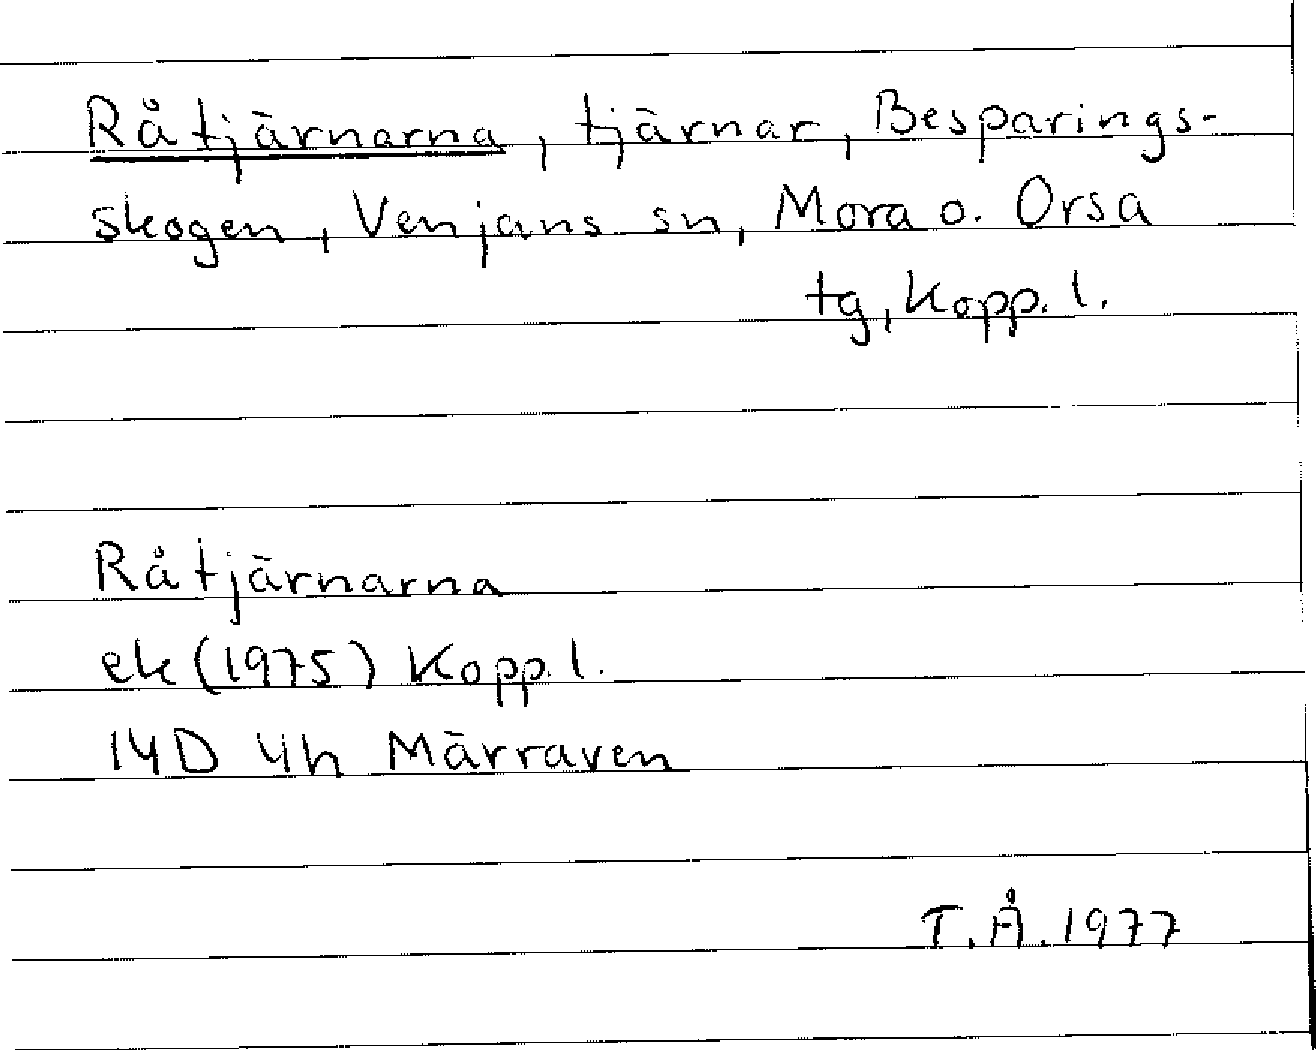 Råtjärnarna, tjärnar, Besparings-
skogen, Venjans sn, Mora o. Orsa
tg, Kopp. l.
Råtjärnarna
ek (1975) Kopp. l.
14D 4h Märraven
T.Å. 1977